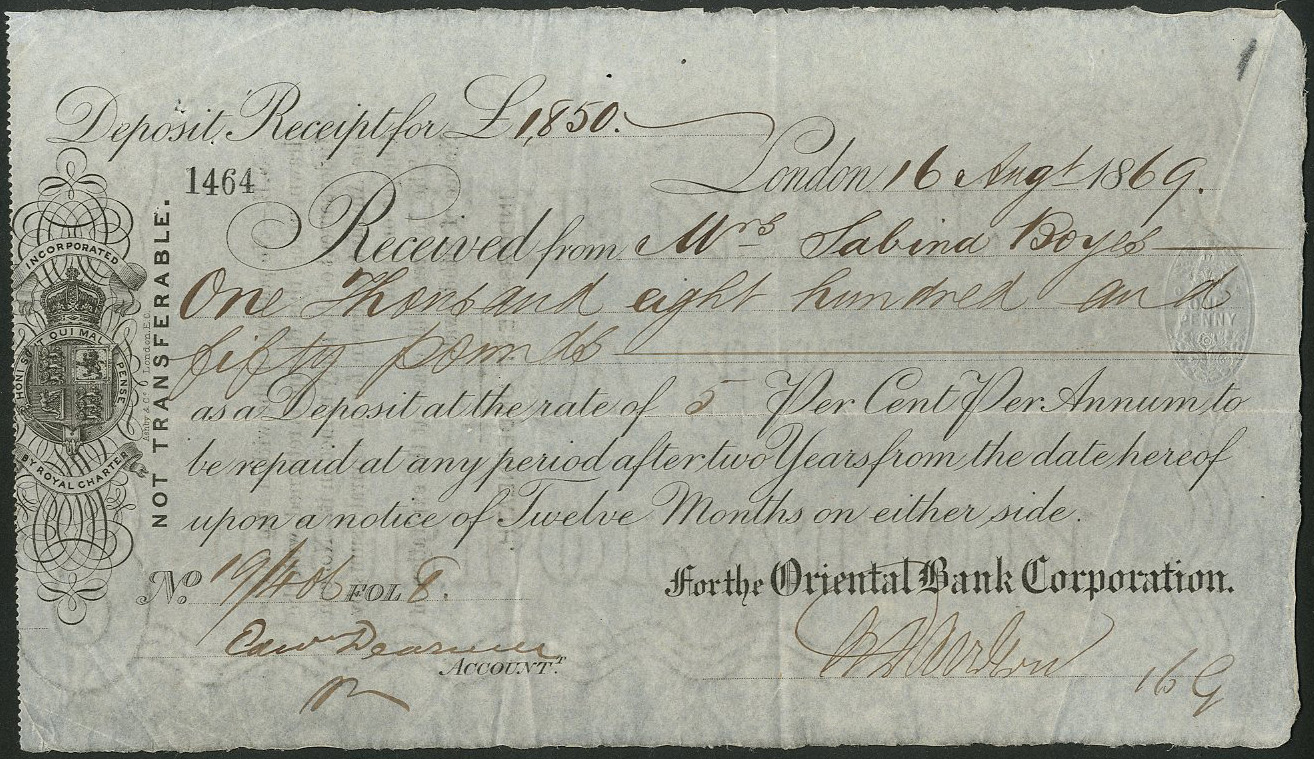 1
Deposit Receipt for £1,850.
London 16 Augt 1869.
1464
Received from Mrs Sabina Boyes
One Thousand eight hundred and
fifty pounds
as a Deposit at the rate of 5 Per Cent Per Annum, to
be repaid at any period after two Years from the date hereof
upon a notice of Twelve Months on either side.
No 19/406 FOL 8.
For the Oriental Bank Corporation.
Edwd
ACCOUNT.T
169
NOT TRANSFERABLE.
Ashby & Co. London, E.C.
INCORPORATED
HONI SOIT QUI MAL Y PENSE
BY ROYAL CHARTER
ONE
PENNY